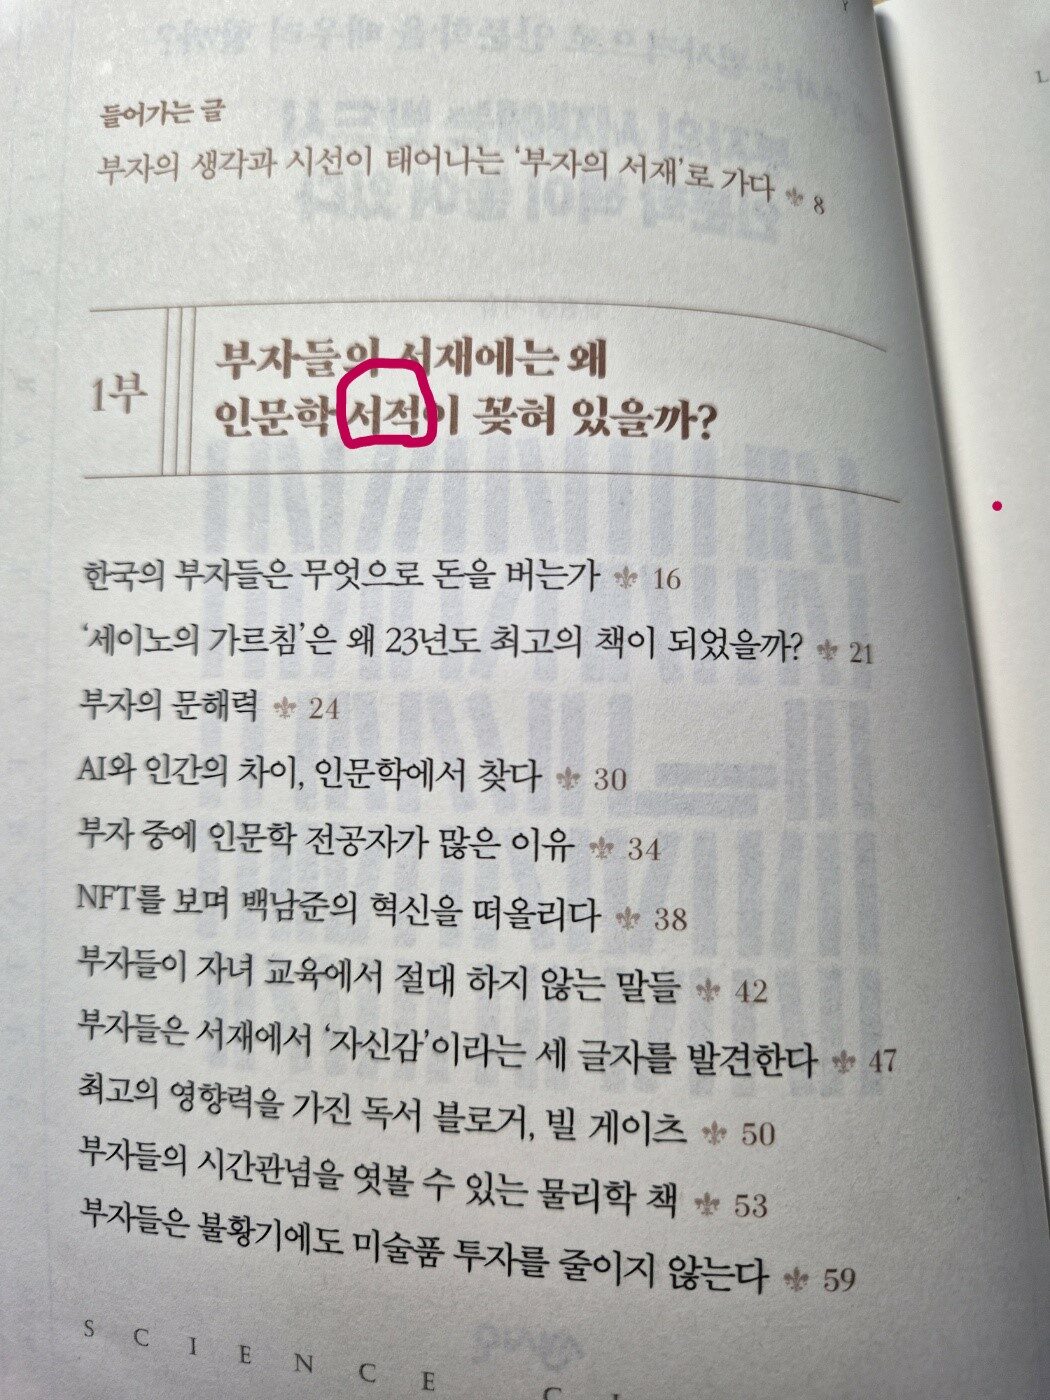 들어가는 글
부자의 생각과 시선이 태어나는 '부자의 서재'로 가다 8
1부
부자들의 서재에는 왜
인문학 서적이 꽂혀 있을까?
한국의 부자들은 무엇으로 돈을 버는가 16
'세이노의 가르침'은 왜 23년도 최고의 책이 되었을까? 21
부자의 문해력 24
AI와 인간의 차이, 인문학에서 찾다 30
부자 중에 인문학 전공자가 많은 이유 34
NFT를 보며 백남준의 혁신을 떠올리다 38
부자들이 자녀 교육에서 절대 하지 않는 말들 42
부자들은 서재에서 '자신감'이라는 세 글자를 발견한다 47
최고의 영향력을 가진 독서 블로거, 빌 게이츠 50
부자들의 시간관념을 엿볼 수 있는 물리학 책 53
부자들은 불황기에도 미술품 투자를 줄이지 않는다 59
SCIENCE